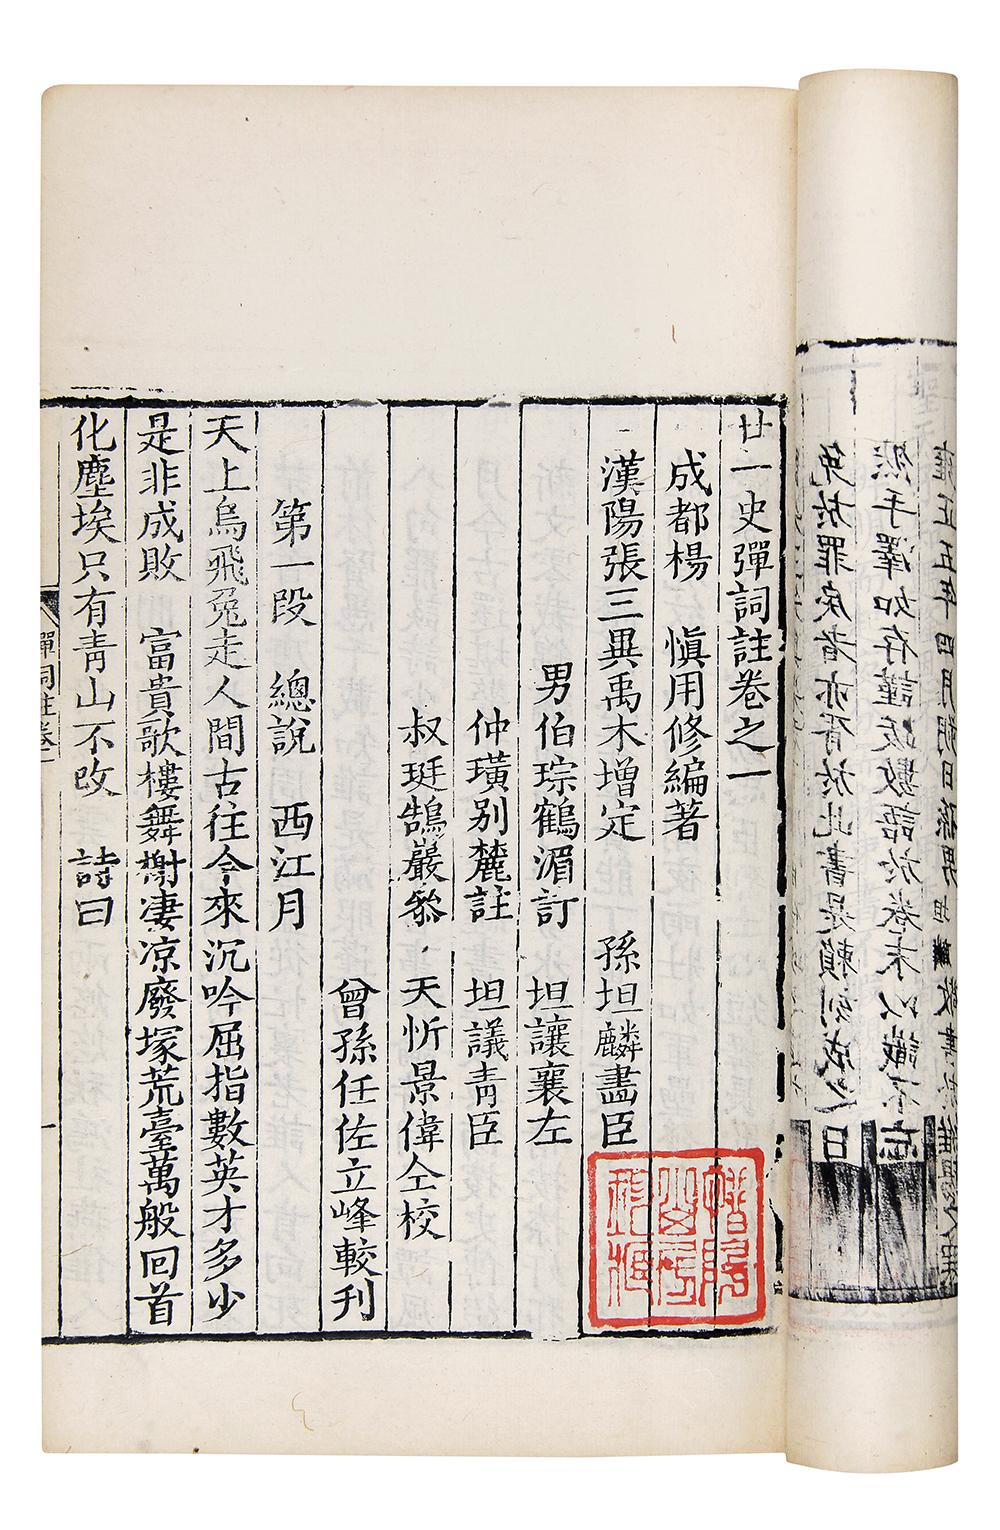 免於罪戾者亦胥於此書是賴刻成之日
然手澤如存謹跋數語於卷末以識不忘
雍正五年四月朔日孫男坦麟敬書於維揚
廿一史彈詞註卷之一
成都楊 慎用修編著
漢陽張三異禹木增定 孫坦麟畫臣
男伯琮鶴湄訂 坦讓襄左
仲璜別麓註 坦議青臣
叔珽鵠巖叅 天忻景偉仝校
曾孫任佐立峰較刊
第一段 總說 西江月
天上烏飛兔走人間古往今來沉吟屈指數英才多少
是非成敗 富貴歌樓舞榭凄凉廢塚荒臺萬般回首
化塵埃只有青山不改 詩曰
彈詞註卷一
一